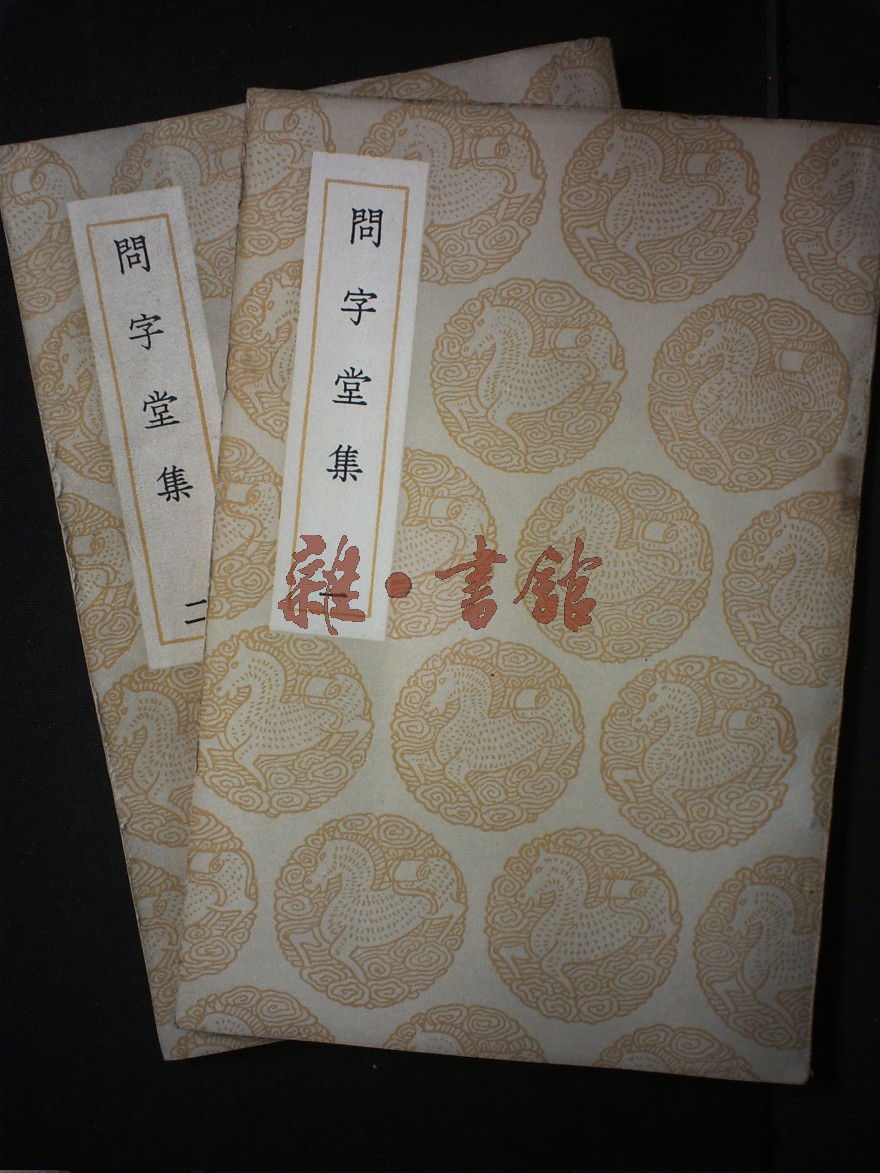 問字堂集
二
問字堂集
一
雜·書館